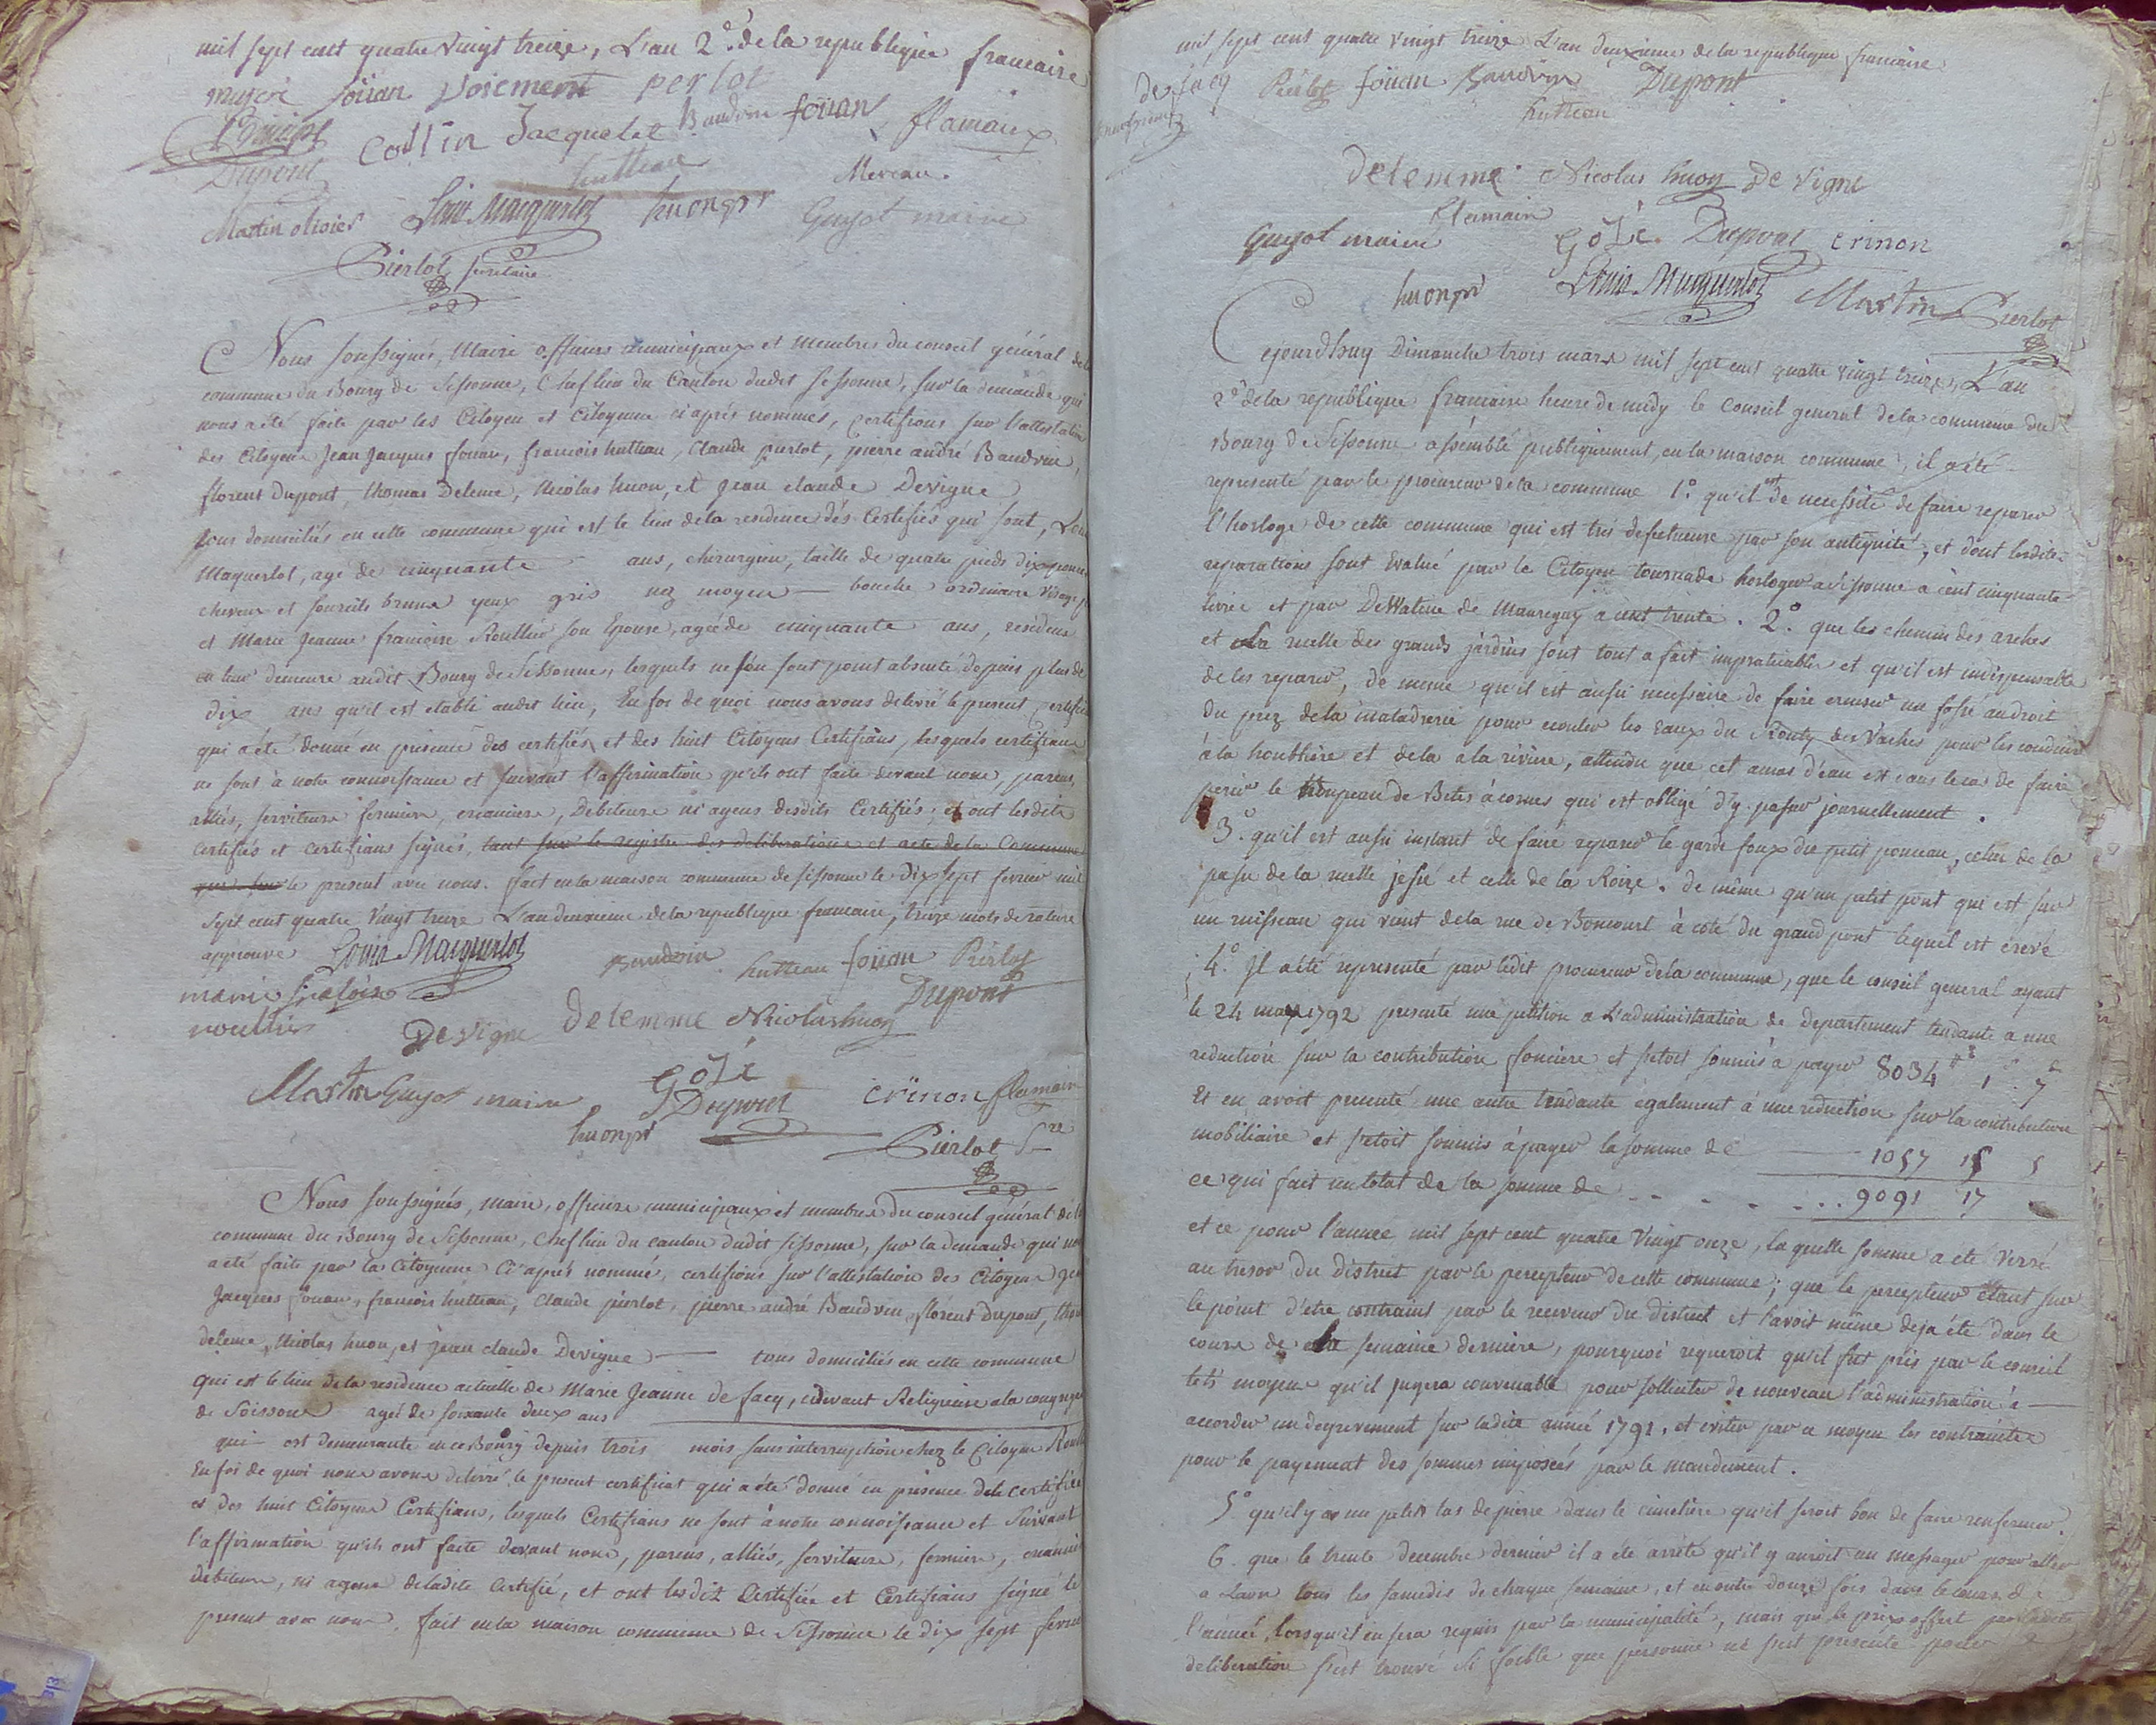 mil sept cent quatre vingt treize, L'an 2e. de la republique francaise
fouan Voiement perlot
Collin Jacquelet Baudvin fouan flamain
Dupont hutteau Mereau.
Martin olivier Louis Macquerlot huon pr Guyot maire
Pierlot secretaire
Nous soussignés, Maire officiers municipaux et membres du conseil général de la
commune du Bourg de Sissonne, Chef lieu du Canton dudit Sissonne, sur la demande qui
nous a été faite par les Citoyen et Citoyenne ci après nommés, certifions sur l'attestation
des Citoyens Jean Jacques fouan, francois hutteau, Claude pierlot, pierre andré Baudvin,
florent Dupont, thomas Deleme, Nicolas huon, et Jean claude Devigne
tous domiciliés en cette commune qui est le lieu de la residence des Certifiés qui sont, Louis
Maquerlot, agé de cinquante ans, chirurgien, taille de quatre pieds dix pouces
cheveux et sourcils bruns yeux gris nez moyen — bouche ordinaire visage
et Marie Jeanne francoise Roullier son Epouse, agée de cinquante ans, residens
en leur demeure audit Bourg de Sissonne, lesquels ne s'en sont point absenté depuis plus de
dix ans qu'il est etabli audit lieu, En foi de quoi nous avons delivré le present certificat
qui a été donné en presence des certifiés et des huit Citoyens Certifians, lesquels certifians
ne sont à notre connoissance et suivant l'affirmation qu'ils ont faite devant nous, parens,
alliés, serviteurs fermiers, creanciers, Debiteurs ni agens desdits Certifiés; et ont lesdits
certifiés et certifians signés, tant sur le registre des deliberations et acte de la Commune
que sur le present avec nous. fait en la maison commune de sissonne le dix sept fevrier mil
sept cent quatre vingt treize L'an deuxieme de la republique francaise, treize mots de rature
approuvé Louis Macquerlot Baudvin hutteau fouan Pierlot
marie
roullier Devigne delemme Nicolas huon Dupont
Martin Guyot maire Golé crinon flamain
huon pr Dupont Pierlot Sre
Nous soussignés, maire, officiers municipaux et membres du conseil général de la
commune du Bourg de Sissonne, Chef lieu du canton dudit Sissonne, sur la demande qui nous
a été faite par la Citoyenne Ci après nommé, certifions sur l'attestation des Citoyens Jean
Jacques fouan, francois hutteau, Claude pierlot, pierre andré Baudvin, florent Dupont, thomas
deleme, Nicolas huon, et Jean claude Devigne — tous domiciliés en cette commune
qui est le lieu de la residence actuelle de Marie Jeanne de facq, cidevant Religieuse a la congrega
de Soissons agée de soixante deux ans
qui est demeurante en ce Bourg depuis trois mois sans interruption chez le Citoyen
En foi de quoi nous avons delivré le present certificat qui a été donné en presence de la certifiée
et des huit Citoyens Certifians, lesquels Certifians ne sont à notre connoissance et suivant
l'affirmation qu'ils ont faite devant nous, parens, alliés, serviteurs, fermiers, creanciers
debiteurs, ni agens de ladite certifié, et ont lesdits certifiée et Certifians signé le
present avec nous. fait en la maison commune de Sissonne le dix sept fevrier
mil sept cent quatre vingt treize L'an deuxieme de la republique francaise
de facq Pierlot fouan Baudvin Dupont
hutteau
Delemme Nicolas huon De vigne
flamain
Guyot maire Golé. Dupont crinon
huon pr Louis Macquerlot Martin Pierlot
Cejourdhuy Dimanche trois mars mil sept cent quatre vingt treize, L'an
2e de la republique francaise heure de midy le Conseil general de la commune du
Bourg de Sissonne assemblé publiquement, en la maison commune, il a été
representé par le procureur de la commune 1°. qu'il est de necessité de faire reparer
l'horloge de cette commune qui est très defectueuse par son antiquité, et dont lesdites
reparations sont evalué par le Citoyen tournade horloger a Sissonne a cent cinquante
livres et par DeWatine de Mauregny a cent trente. 2°. que les chemin des arches
et la ruelle des grands jardins sont tout a fait impraticables et qu'il est indispensable
de les reparer, de meme qu'il est aussi necessaire de faire creuser un fossé au droit
du prez de la maladrerie pour ecouler les eaux du Routy des Vaches pour les conduire
à la houblière et de la a la riviere, attendu que cet amas d'eau est dans le cas de faire
perir le troupeau de Betes à cornes qui est obligé d'y passer journellement.
3°. qu'il est aussi instant de faire reparer le garde foux du petit ponceau, celui de la
passe de la ruelle jessé et celle de la Roize. de même qu'un petit pont qui est sur
un ruisseau qui vient de la rue de Boncourt à coté du grand pont lequel est crevé
4°. Il a été representé par ledit procureur de la commune, que le conseil general ayant
le 24 may 1792 presenté une petition a L'administration de departement tendante a une
reduction sur la contribution fonciere et s'etoit soumis à payer 8034# 1s. 7d
Et en avoit presenté une autre tendante également à une reduction sur la contribution
mobiliaire et s'etoit soumis à payer la somme de — 1057 15 5
ce qui fait un total de la somme de . . . . . 9091 17
et ce pour l'année mil sept cent quatre vingt onze, la quelle somme a ete versé
au tresor du district par le percepteur de cette commune; que le percepteur étant sur
le point d'etre contraint par le receveur du district et l'avoit même deja été dans le
cours de la semaine derniere, pourquoi requeroit qu'il fut pris par le conseil
tels moyens qu'il jugera convenable pour solliciter de nouveau l'administration à —
accorder un degrevement sur ladite année 1791, et eviter par ce moyen les contraintes
pour le payement des sommes imposées par le mandement.
5° qu'il y a un petit tas de pierre dans le cimetiere qu'il seroit bon de faire renfermer.
6. que le trente decembre dernier il a été arrêté qu'il y auroit un messager pour aller
a Laon tous les samedis de chaque semaine, et en outre douze fois dans le cours de
l'année, lorsqu'il en sera requis par la municipalité, mais que le prix offert par ladite
deliberation s'est trouvé si foible que personne ne s'est presenté pour